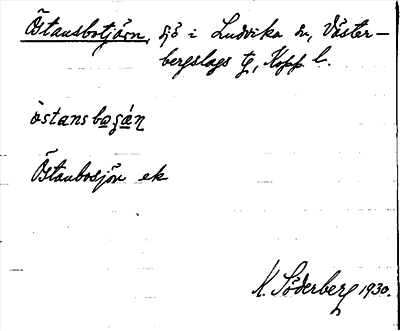 Östansbotjärn, sjö i Ludvika sn, Väster-
bergslags tg, Kopp. l.
östansbo̲ʂä́n̲
Östanbosjön ek
K. Söderberg 1930.